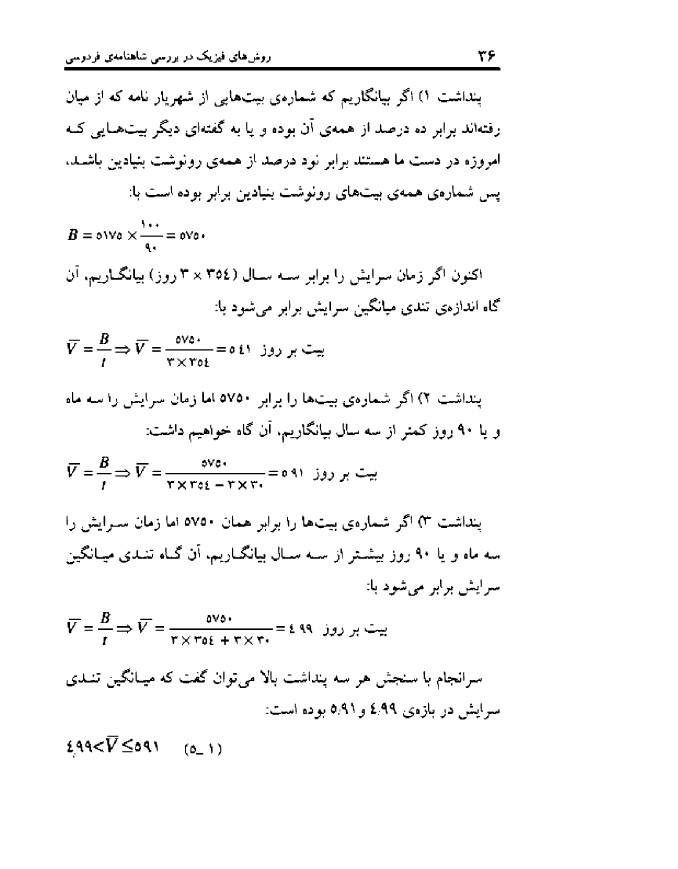 ۳۶ روش‌های فیزیک در بررسی شاهنامه‌ی فردوسی
پنداشت ۱) اگر بیانگاریم که شماره‌ی بیت‌هایی از شهریار نامه که از میان
رفته‌اند برابر ده درصد از همه‌ی آن بوده و یا به گفته‌ای دیگر بیت‌هایی که
امروزه در دست ما هستند برابر نود درصد از همه‌ی رونوشت بنیادین باشد،
پس شماره‌ی همه‌ی بیت‌های رونوشت بنیادین برابر بوده است با:
B = ٥١٧٥ × ١٠٠/٩٠ = ٥٧٥٠
اکنون اگر زمان سرایش را برابر سه سال (٣٥٤ × ٣ روز) بیانگاریم، آن
گاه اندازه‌ی تندی میانگین سرایش برابر می‌شود با:
V̅ = B/t ⇒ V̅ = ٥٧٥٠/٣×٣٥٤ = ٥٤١ بیت بر روز
پنداشت ۲) اگر شماره‌ی بیت‌ها را برابر ٥٧٥٠ اما زمان سرایش را سه ماه
و یا ۹۰ روز کمتر از سه سال بیانگاریم، آن گاه خواهیم داشت:
V̅ = B/t ⇒ V̅ = ٥٧٥٠/٣×٣٥٤ − ٣×٣٠ = ٥٩١ بیت بر روز
پنداشت ۳) اگر شماره‌ی بیت‌ها را برابر همان ٥٧٥٠ اما زمان سرایش را
سه ماه و یا ۹۰ روز بیشتر از سه سال بیانگاریم، آن گاه تندی میانگین
سرایش برابر می‌شود با:
V̅ = B/t ⇒ V̅ = ٥٧٥٠/٣×٣٥٤ + ٣×٣٠ = ٤٩٩ بیت بر روز
سرانجام با سنجش هر سه پنداشت بالا می‌توان گفت که میانگین تندی
سرایش در بازه‌ی ٤,٩٩ و ٥,٩١ بوده است:
٤,٩٩<V̅ ≤٥٩١ (٥_١)